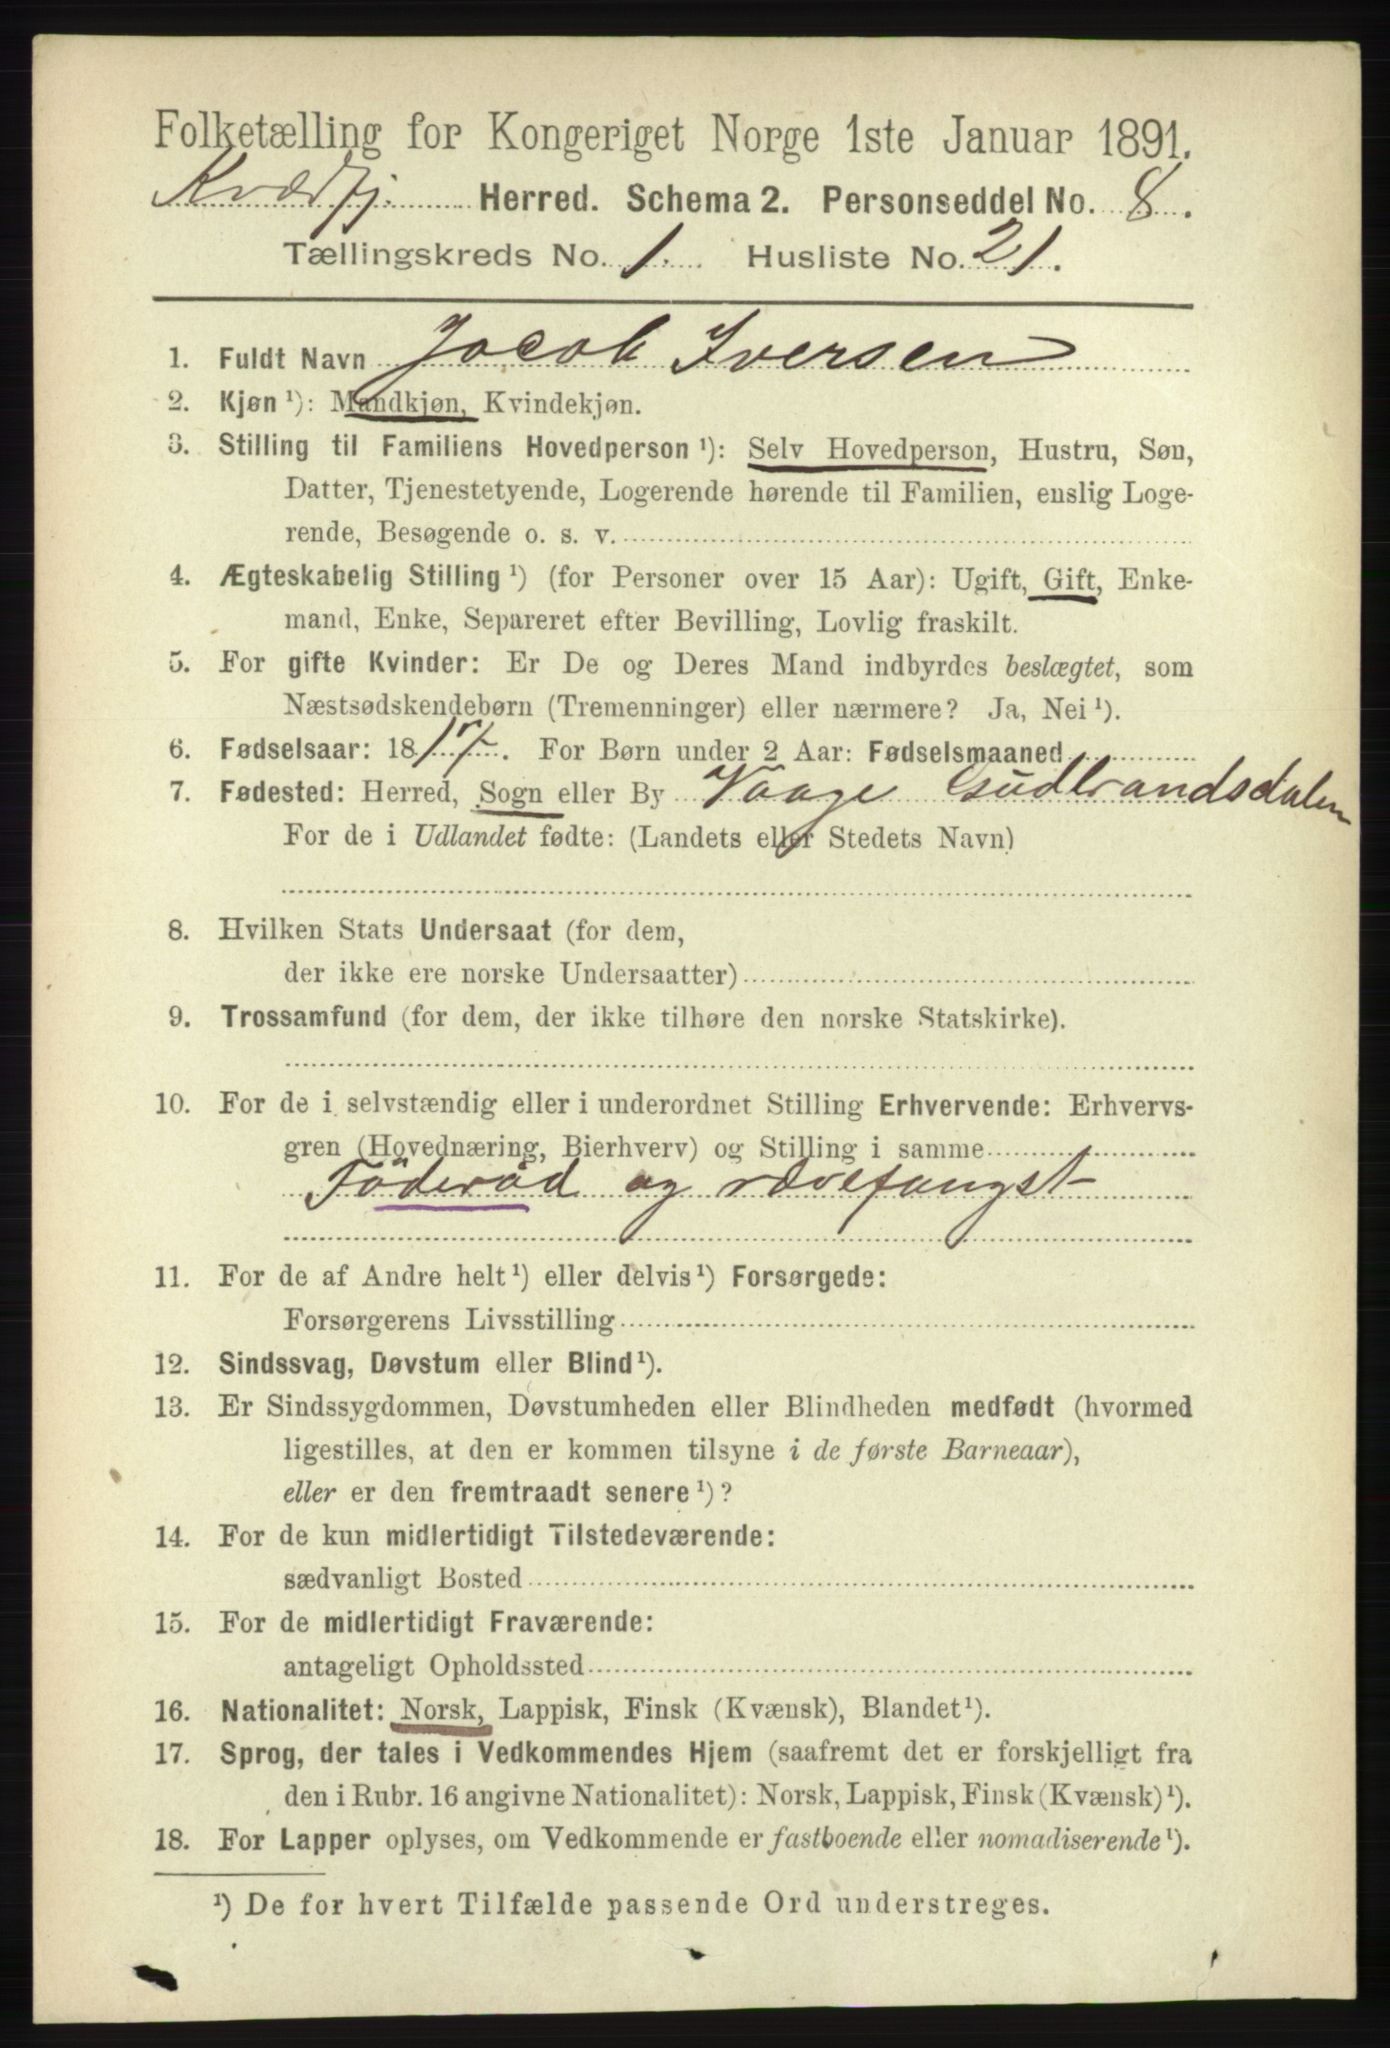 Folketælling for Kongeriget Norge 1ste Januar 1891.
Kvædfj. Herred. Schema 2. Personseddel No. 8.
Tællingskreds No. 1. Husliste No. 21.
1. Fuldt Navn Jocob Iversen
2. Kjøn ¹): Mandkjøn, Kvindekjøn.
3. Stilling til Familiens Hovedperson ¹): Selv Hovedperson, Hustru, Søn,
Datter, Tjenestetyende, Logerende hørende til Familien, enslig Loge-
rende, Besøgende o. s. v.
4. Ægteskabelig Stilling ¹) (for Personer over 15 Aar): Ugift, Gift, Enke-
mand, Enke, Separeret efter Bevilling, Lovlig fraskilt.
5. For gifte Kvinder: Er De og Deres Mand indbyrdes beslægtet, som
Næstsødskendebørn (Tremenninger) eller nærmere? Ja, Nei ¹).
6. Fødselsaar: 1817. For Børn under 2 Aar: Fødselsmaaned
7. Fødested: Herred, Sogn eller By Vaage Gudbrandsdalen
For de i Udlandet fødte: (Landets eller Stedets Navn)
8. Hvilken Stats Undersaat (for dem,
der ikke ere norske Undersaatter)
9. Trossamfund (for dem, der ikke tilhøre den norske Statskirke).
10. For de i selvstændig eller i underordnet Stilling Erhvervende: Erhvervs-
gren (Hovednæring, Bierhverv) og Stilling i samme
Föderåd og rævefangst
11. For de af Andre helt ¹) eller delvis ¹) Forsørgede:
Forsørgerens Livsstilling
12. Sindssvag, Døvstum eller Blind ¹).
13. Er Sindssygdommen, Døvstumheden eller Blindheden medfødt (hvormed
ligestilles, at den er kommen tilsyne i de første Barneaar),
eller er den fremtraadt senere ¹)?
14. For de kun midlertidigt Tilstedeværende:
sædvanligt Bosted
15. For de midlertidigt Fraværende:
antageligt Opholdssted
16. Nationalitet: Norsk, Lappisk, Finsk (Kvænsk), Blandet ¹).
17. Sprog, der tales i Vedkommendes Hjem (saafremt det er forskjelligt fra
den i Rubr. 16 angivne Nationalitet): Norsk, Lappisk, Finsk (Kvænsk) ¹).
18. For Lapper oplyses, om Vedkommende er fastboende eller nomadiserende ¹).
¹) De for hvert Tilfælde passende Ord understreges.